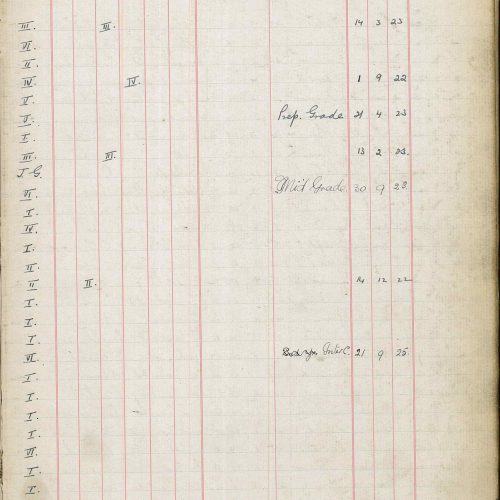 III. III. 14 3 23
VI.
II.
IV. IV. 1 9 22
V.
V. Prep. Grade 21 4 23
I.
III. III. 13 2 23.
J.G.
VI. Mid Grade. 30 9 23.
I.
IV.
I.
II.
II II. 14 12 22
I.
I.
I.
VI. Inter C. 21 9 25.
I.
I.
I.
I.
VI.
I.
I.